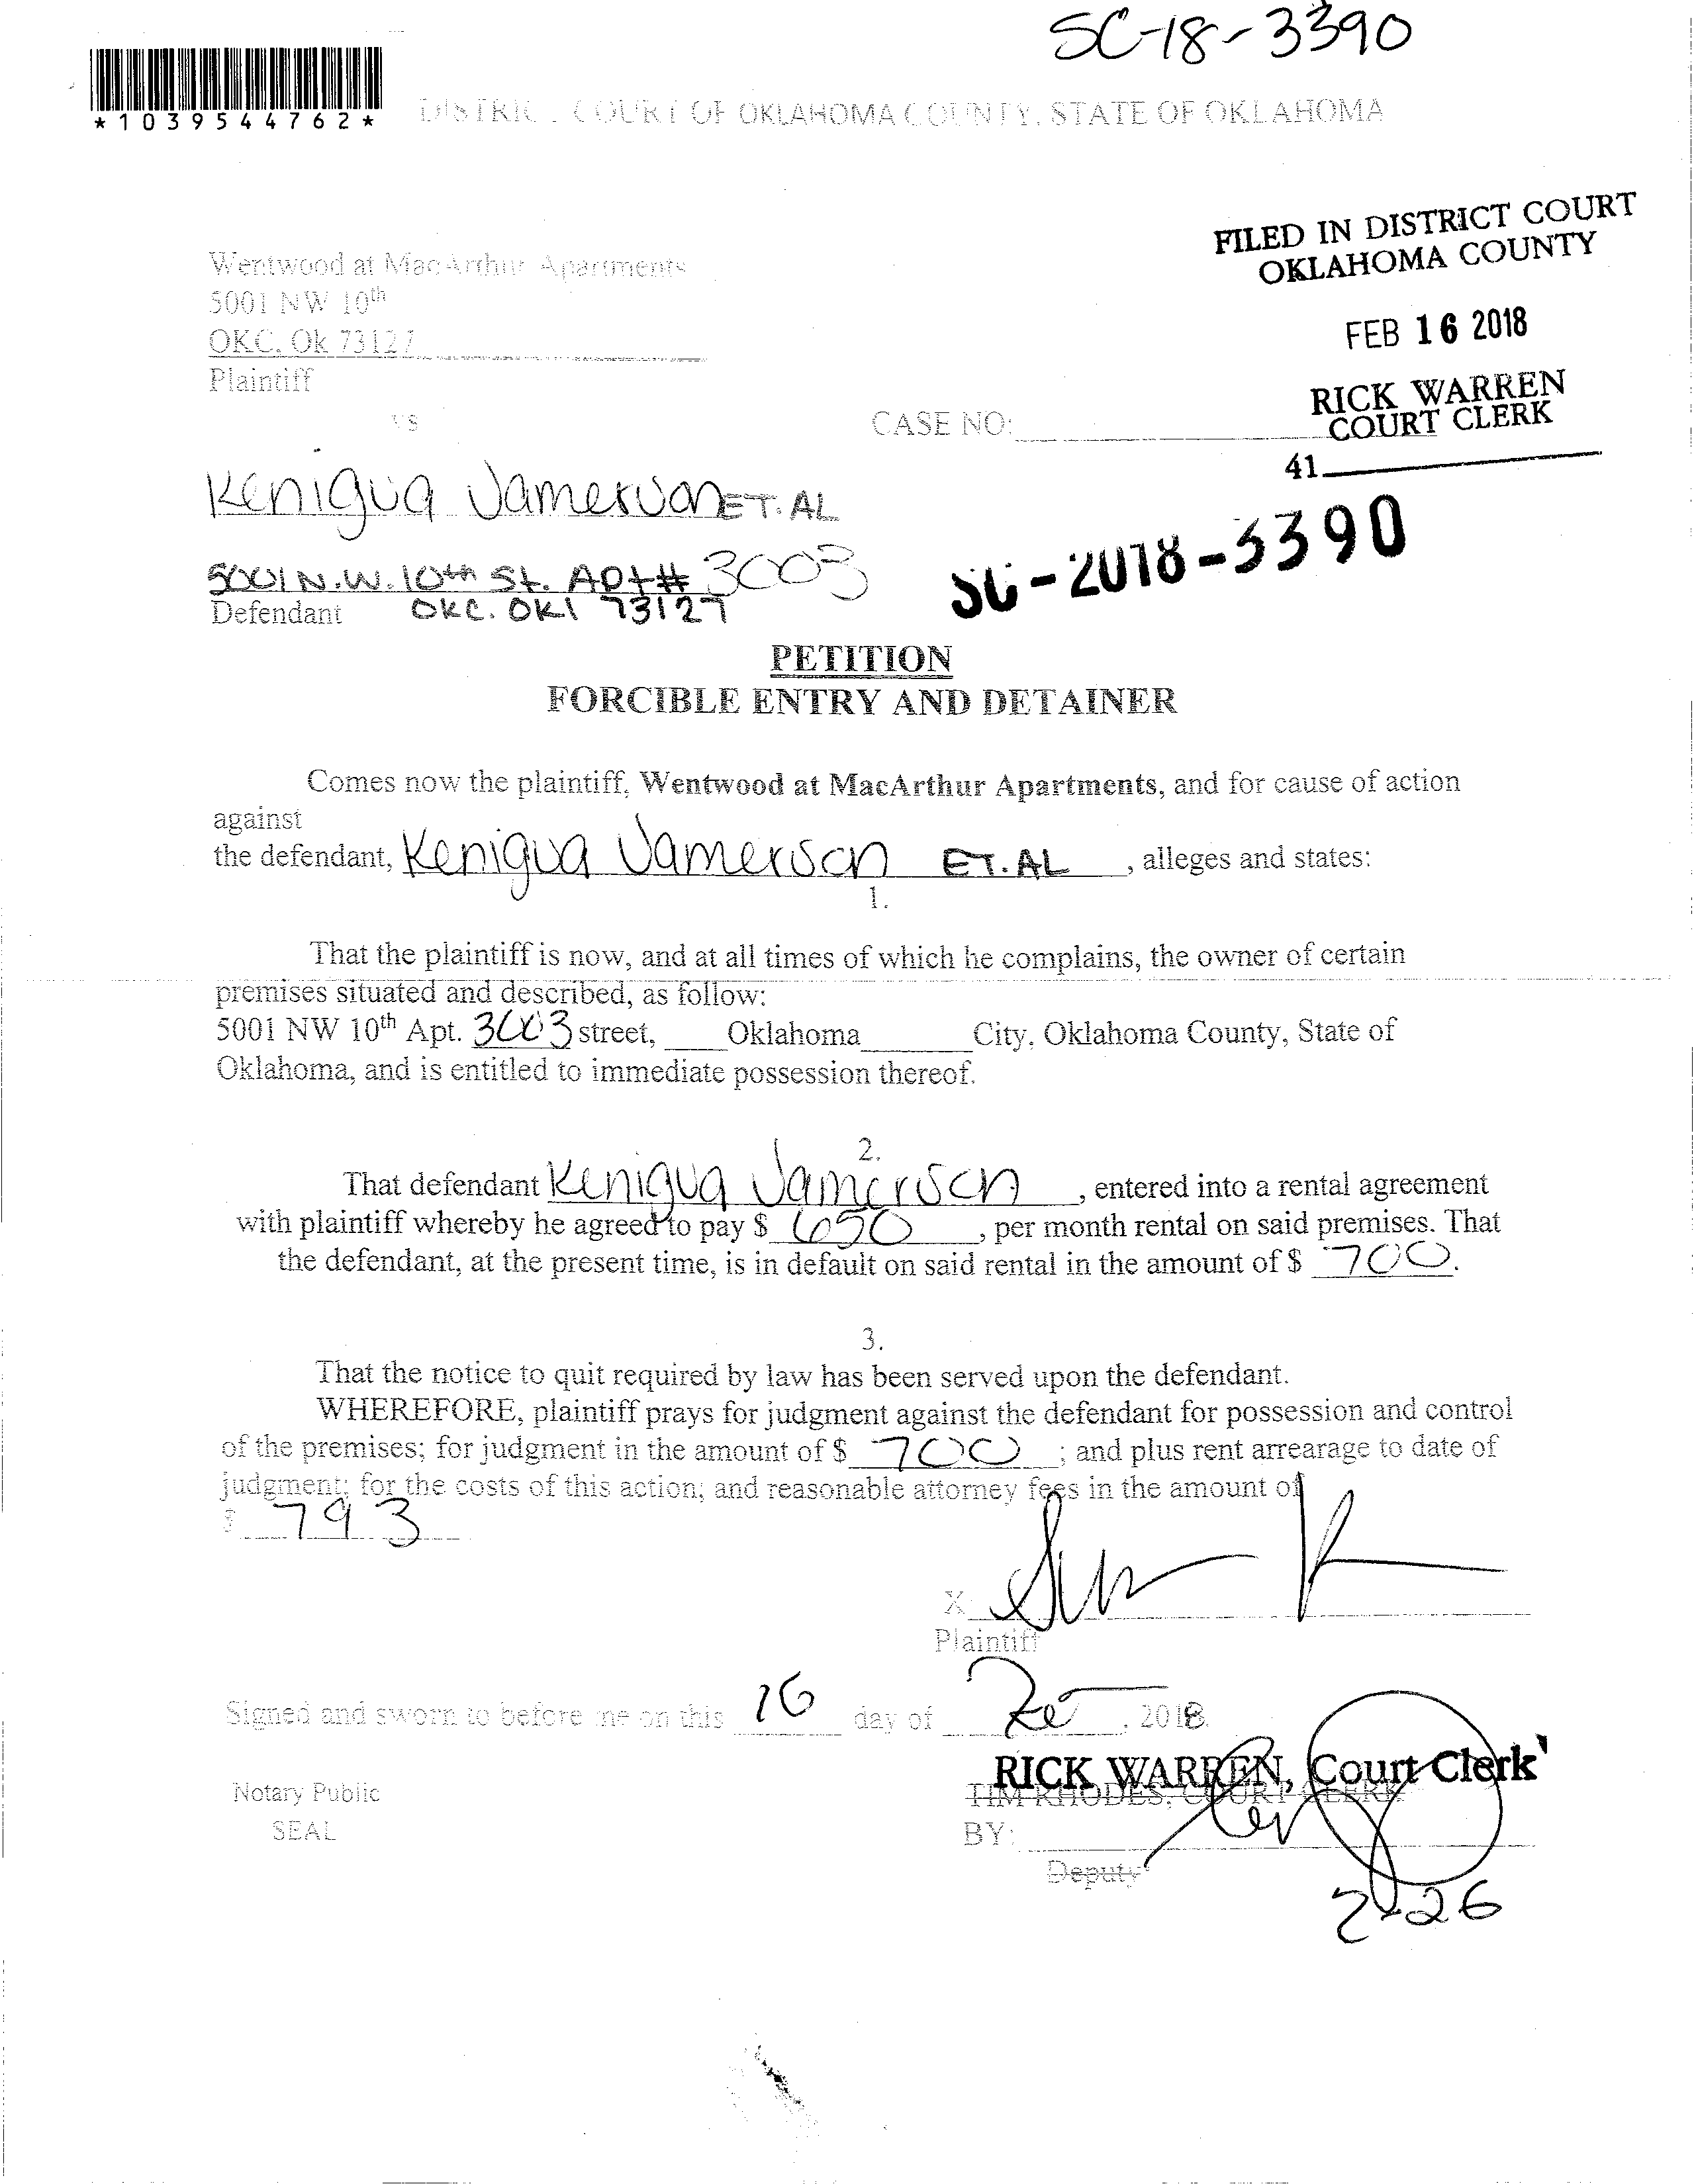 SC-18-3390
*1039544762*
DISTRIC. COURT OF OKLAHOMA COUNTY, STATE OF OKLAHOMA
FILED IN DISTRICT COURT
OKLAHOMA COUNTY
FEB 16 2018
RICK WARREN
COURT CLERK
41
Wentwood at MacArthur Apartments
5001 NW 10th
OKC, Ok 73127
Plaintiff
vs
CASE NO:
Kenigua Jamerson ET. AL
5001 N.W. 10th St. Apt# 3003
Defendant OKC. OKl 73127
SC-2018-3390
PETITION
FORCIBLE ENTRY AND DETAINER
Comes now the plaintiff, Wentwood at MacArthur Apartments, and for cause of action
against
the defendant, Kenigua Jamerson ET. AL, alleges and states:
1.
That the plaintiff is now, and at all times of which he complains, the owner of certain
premises situated and described, as follow:
5001 NW 10th Apt. 3003 street, Oklahoma City, Oklahoma County, State of
Oklahoma, and is entitled to immediate possession thereof.
2.
That defendant Kenigua Jamerson, entered into a rental agreement
with plaintiff whereby he agreed to pay $ 650, per month rental on said premises. That
the defendant, at the present time, is in default on said rental in the amount of $ 700.
3.
That the notice to quit required by law has been served upon the defendant.
WHEREFORE, plaintiff prays for judgment against the defendant for possession and control
of the premises; for judgment in the amount of $ 700; and plus rent arrearage to date of
judgment; for the costs of this action; and reasonable attorney fees in the amount of
$ 793
X
Plaintiff
Signed and sworn to before me on this 16 day of , 2018.
RICK WARREN, Court Clerk
TIM RHODES, COURT CLERK
Notary Public
SEAL
BY:
Deputy
2-26